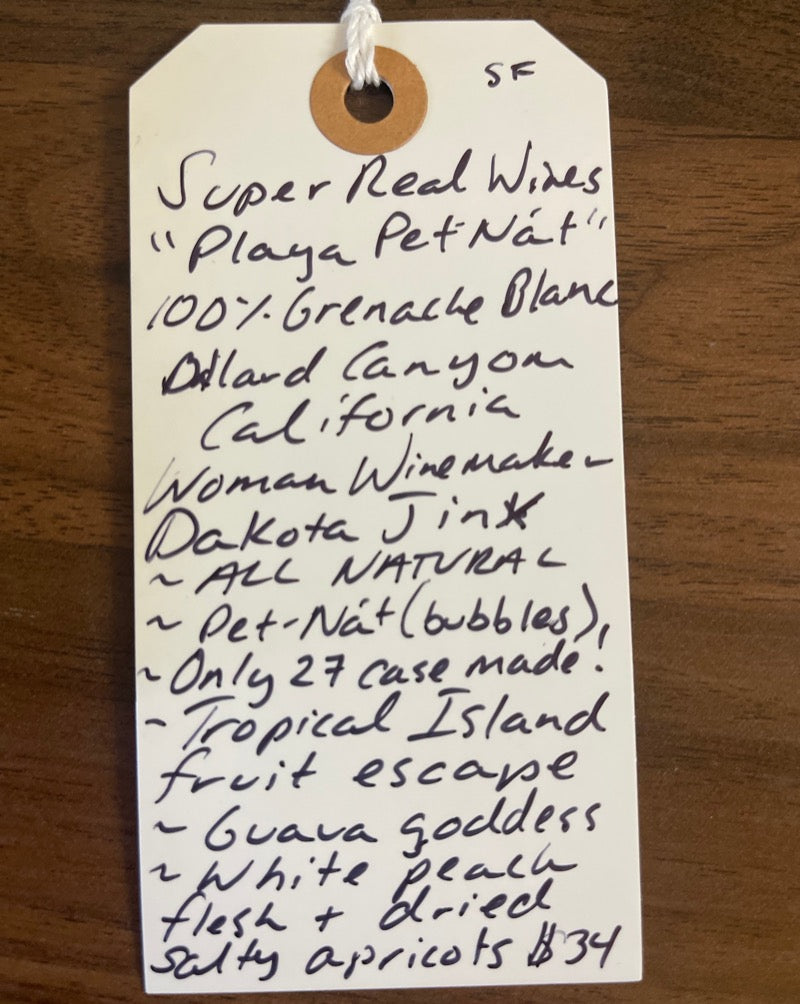 SF
Super Real Wines
"Playa Pet-Nát"
100% Grenache Blanc
Canyon
California
Woman Winemaker
Dakota
~ ALL NATURAL
~ Pet-Nát (bubbles),
~ Only 27 case made!
~ Tropical Island
fruit escape
~ Guava goddess
~ White peach
flesh + dried
salty apricots $34